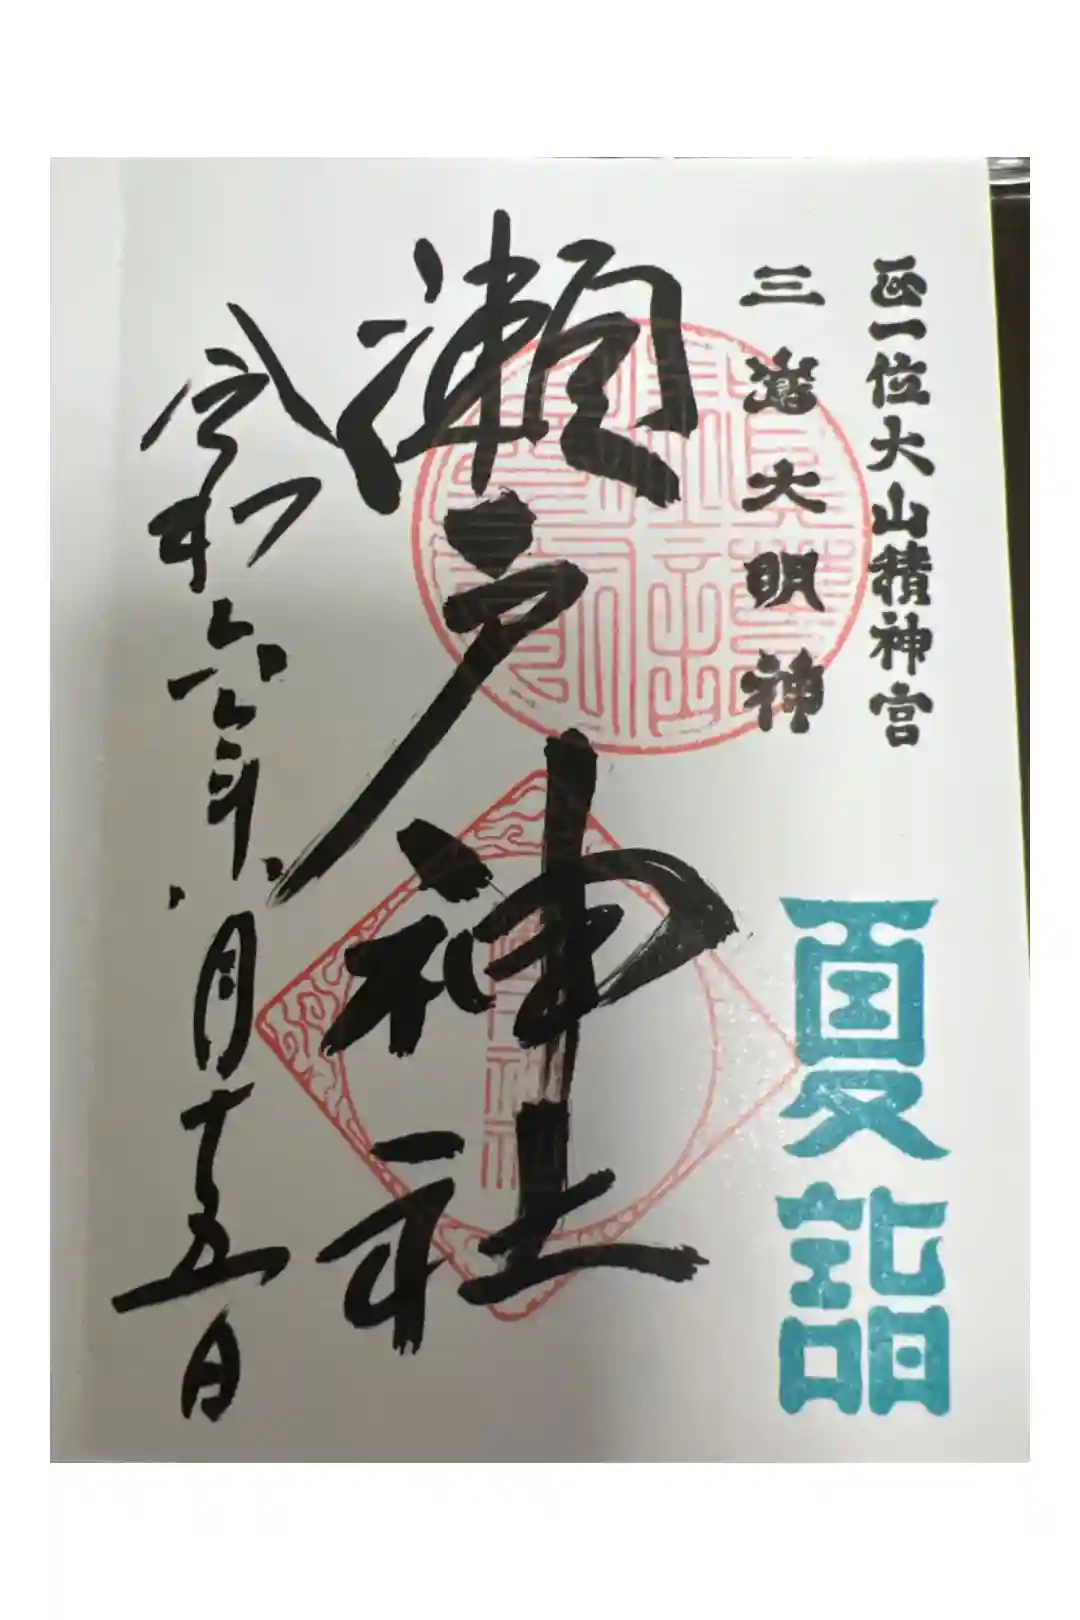 正一位大山積神宮
三嶌大明神
夏詣
瀬戸神社
令和六年八月十五日